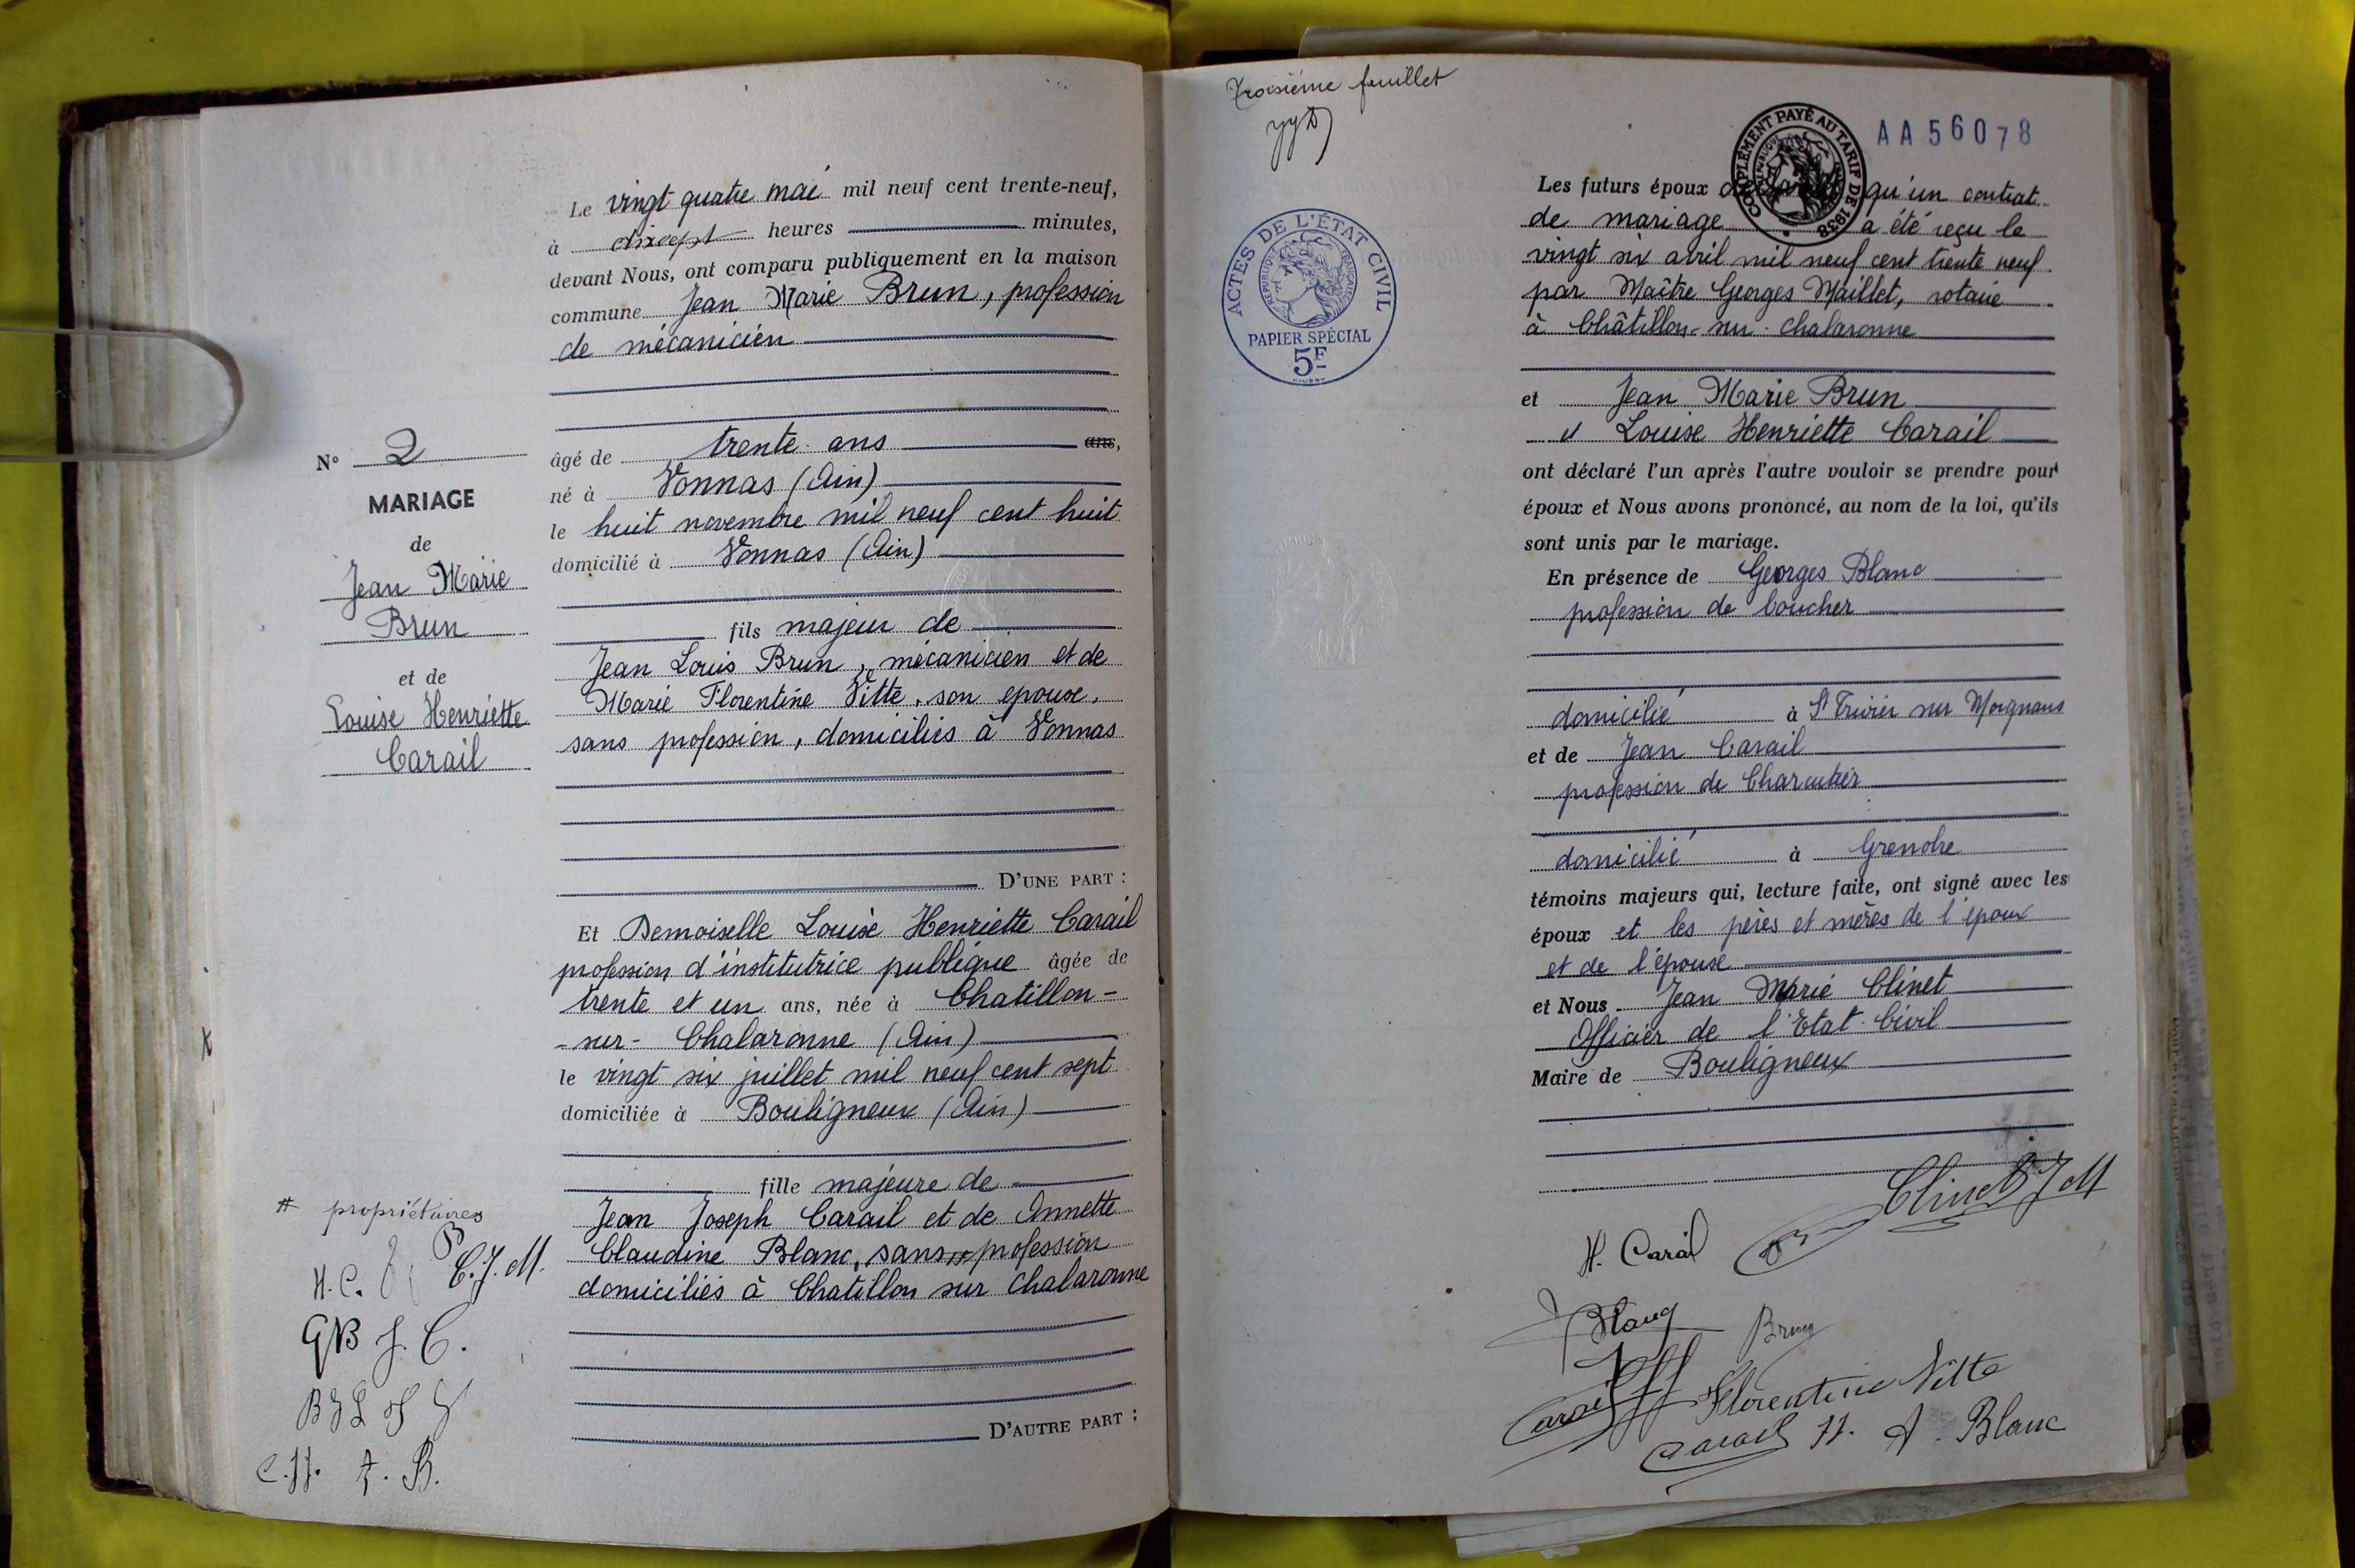 Le vingt quatre mai mil neuf cent trente-neuf,
à dixsept heures minutes,
devant Nous, ont comparu publiquement en la maison
commune Jean Marie Brun, profession
de mécanicien
N° 2
MARIAGE
de
Jean Marie
Brun
et de
Louise Henriette
Carail
âgé de trente ans ans,
né à Vonnas (Ain)
le huit novembre mil neuf cent huit
domicilié à Vonnas (Ain)
fils majeur de
Jean Louis Brun, mécanicien et de
Marie Florentine Vitte, son epouse,
sans profession, domiciliés à Vonnas
D'UNE PART :
Et Demoiselle Louise Henriette Carail
profession d'institutrice publique âgée de
trente et un ans, née à Chatillon-
-sur- Chalaronne (Ain)
le vingt six juillet mil neuf cent sept
domiciliée à Bouligneux (Ain)
fille majeure de
Jean Joseph Carail et de Annette
Claudine Blanc, sans profession
domiciliés à Chatillon sur Chalaronne
D'AUTRE PART :
# propriétaires
H.C. C.J.M.
GB J.C.
C.JJ. A.B.
Troisième feuillet
ACTES DE L'ÉTAT CIVIL
RÉPUBLIQUE FRANÇAISE
PAPIER SPÉCIAL
5F
COMPLÉMENT PAYÉ AU TARIF DE 1938
AA56078
Les futurs époux qu'un contrat
de mariage a été reçu le
vingt six avril mil neuf cent trente neuf
par Maître Georges Maillet, notaire
à Châtillon-sur-Chalaronne
et Jean Marie Brun
et Louise Henriette Carail
ont déclaré l'un après l'autre vouloir se prendre pour
époux et Nous avons prononcé, au nom de la loi, qu'ils
sont unis par le mariage.
En présence de Georges Blanc
profession de boucher
domicilié à St Trivier sur Moignans
et de Jean Carail
profession de Charcutier
domicilié à Grenoble
témoins majeurs qui, lecture faite, ont signé avec les
époux et les pères et mères de l'époux
et de l'épouse
et Nous Jean Marie Clinet
Officier de l'Etat Civil
Maire de Bouligneux
Clinet J M
H. Carail
Blanc
Brun
Carail
Florentine Vitte
Carail JJ. A. Blanc